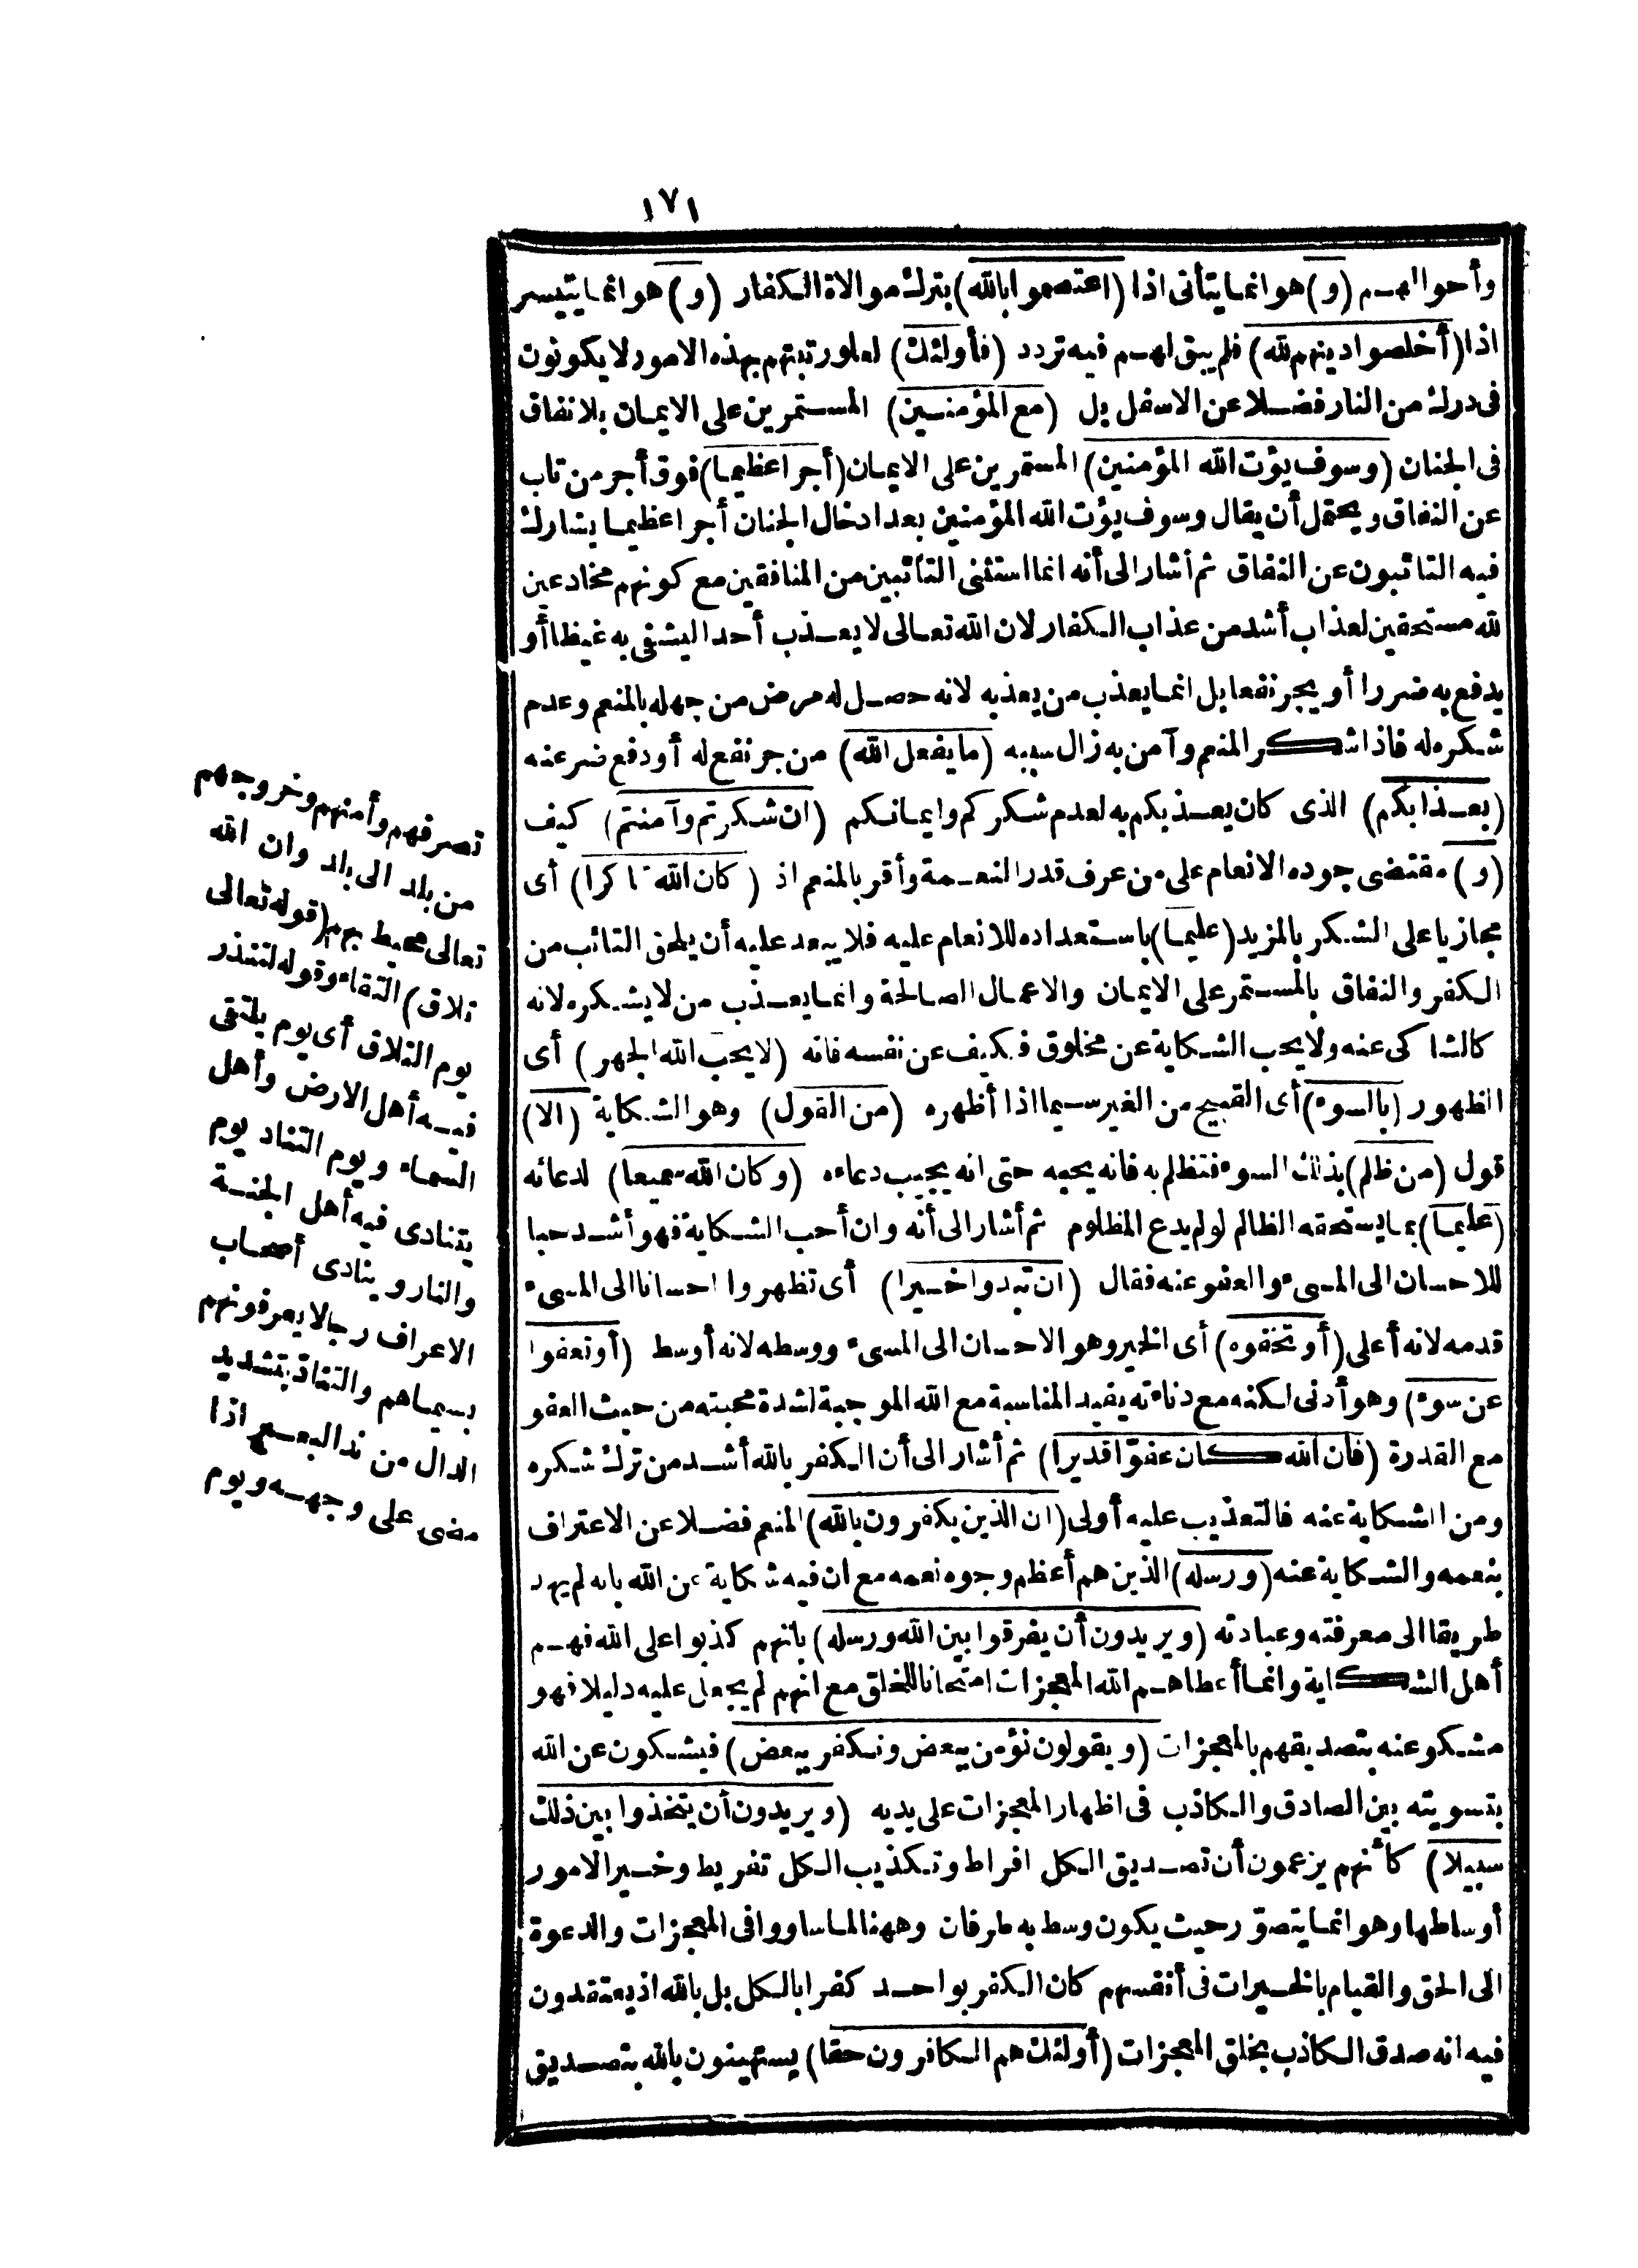 ١٧١
وأحوالهم (و) هو انما يتأتى اذا (اعتصموا بالله) بترك موالاة الكفار (و) هو انما يتيسر
اذا (أخلصوا دينهم لله) فلم يبق لهم فيه تردد (فأولئك) لعلو رتبتهم بهذه الامور لا يكونون
فى درك من النار فضلا عن الاسفل بل (مع المؤمنين) المستمرين على الايمان بلا نفاق
فى الجنان (وسوف يؤت الله المؤمنين) المستمرين على الايمان (أجرا عظيما) فوق أجر من تاب
عن النفاق ويحتمل أن يقال وسوف يؤت الله المؤمنين بعد ادخال الجنان أجرا عظيما يشارك
فيه التائبون عن النفاق ثم أشار الى أنه انما استثنى التائبين من المنافقين مع كونهم مخادعين
لله مستحقين لعذاب أشد من عذاب الكفار لان الله تعالى لا يعذب أحدا ليشفى به غيظا أو
يدفع به ضررا أو يجر نفعا بل انما يعذب من يعذبه لانه حصل له مرض من جهله بالمنعم وعدم
شكره له فاذا شكر المنعم وآمن به زال سببه (ما يفعل الله) من جر نفع له أو دفع ضر عنه
(بعذابكم) الذى كان يعذبكم به لعدم شكركم وايمانكم (ان شكرتم وآمنتم) كيف
(و) مقتضى جوده الانعام على من عرف قدر النعمة وأقر بالمنعم اذ (كان الله شاكرا) أى
مجازيا على الشكر بالمزيد (عليما) باستعداده للانعام عليه فلا يبعد عليه أن يلحق التائب من
الكفر والنفاق بالمستمر على الايمان والاعمال الصالحة وانما يعذب من لا يشكره لانه
كالشاكى عنه ولا يحب الشكاية عن مخلوق فكيف عن نفسه فانه (لا يحب الله الجهر) أى
الظهور (بالسوء) أى القبيح من الغير سيما اذا أظهره (من القول) وهو الشكاية (الا)
قول (من ظلم) بذلك السوء فتظلم به فانه يحبه حتى انه يجيب دعاءه (وكان الله سميعا) لدعائه
(عليما) بما يستحقه الظالم لو لم يدع المظلوم ثم أشار الى أنه وان أحب الشكاية فهو أشد حبا
للاحسان الى المسىء والعفو عنه فقال (ان تبدوا خيرا) أى تظهروا احسانا الى المسىء
قدمه لانه أعلى (أو تخفوه) أى الخير وهو الاحسان الى المسىء ووسطه لانه أوسط (أو تعفوا
عن سوء) وهو أدنى لكنه مع دناءته يفيد المناسبة مع الله الموجبة لشدة محبته من حيث العفو
مع القدرة (فان الله كان عفوّا قديرا) ثم أشار الى أن الكفر بالله أشد من ترك شكره
ومن الشكاية عنه فالتعذيب عليه أولى (ان الذين يكفرون بالله) المنعم فضلا عن الاعتراف
بنعمه والشكاية عنه (ورسله) الذين هم أعظم وجوه نعمه مع ان فيه شكاية عن الله بانه لم يهد
طريقا الى معرفته وعبادته (ويريدون أن يفرقوا بين الله ورسله) بانهم كذبوا على الله فهم
أهل الشكاية وانما أعطاهم الله المعجزات امتحانا للخلق مع انهم لم يجعل عليه دليلا فهو
مشكو عنه بتصديقهم بالمعجزات (ويقولون نؤمن ببعض ونكفر ببعض) فيشكون عن الله
بتسويته بين الصادق والكاذب فى اظهار المعجزات على يديه (ويريدون أن يتخذوا بين ذلك
سبيلا) كأنهم يزعمون أن تصديق الكل افراط وتكذيب الكل تفريط وخير الامور
أوساطها وهو انما يتصوّر حيث يكون وسط به طرفان وههنا لما ساووا فى المعجزات والدعوة
الى الحق والقيام بالخيرات فى أنفسهم كان الكفر بواحد كفرا بالكل بل بالله اذ يعتقدون
فيه انه صدق الكاذب بخلق المعجزات (أولئك هم الكافرون حقا) يستهينون بالله بتصديق
تصرفهم وأمنهم وخروجهم
من بلد الى بلد وان الله
تعالى محيط بهم (قوله تعالى
تلاق) التقاء وقوله لتنذر
يوم التلاق أى يوم يلتقى
فيه أهل الارض وأهل
السماء ويوم التناد يوم
يتنادى فيه أهل الجنة
والنار وينادى أصحاب
الاعراف رجالا يعرفونهم
بسيماهم والتناد بتشديد
الدال من ند البعير اذا
مضى على وجهه ويوم